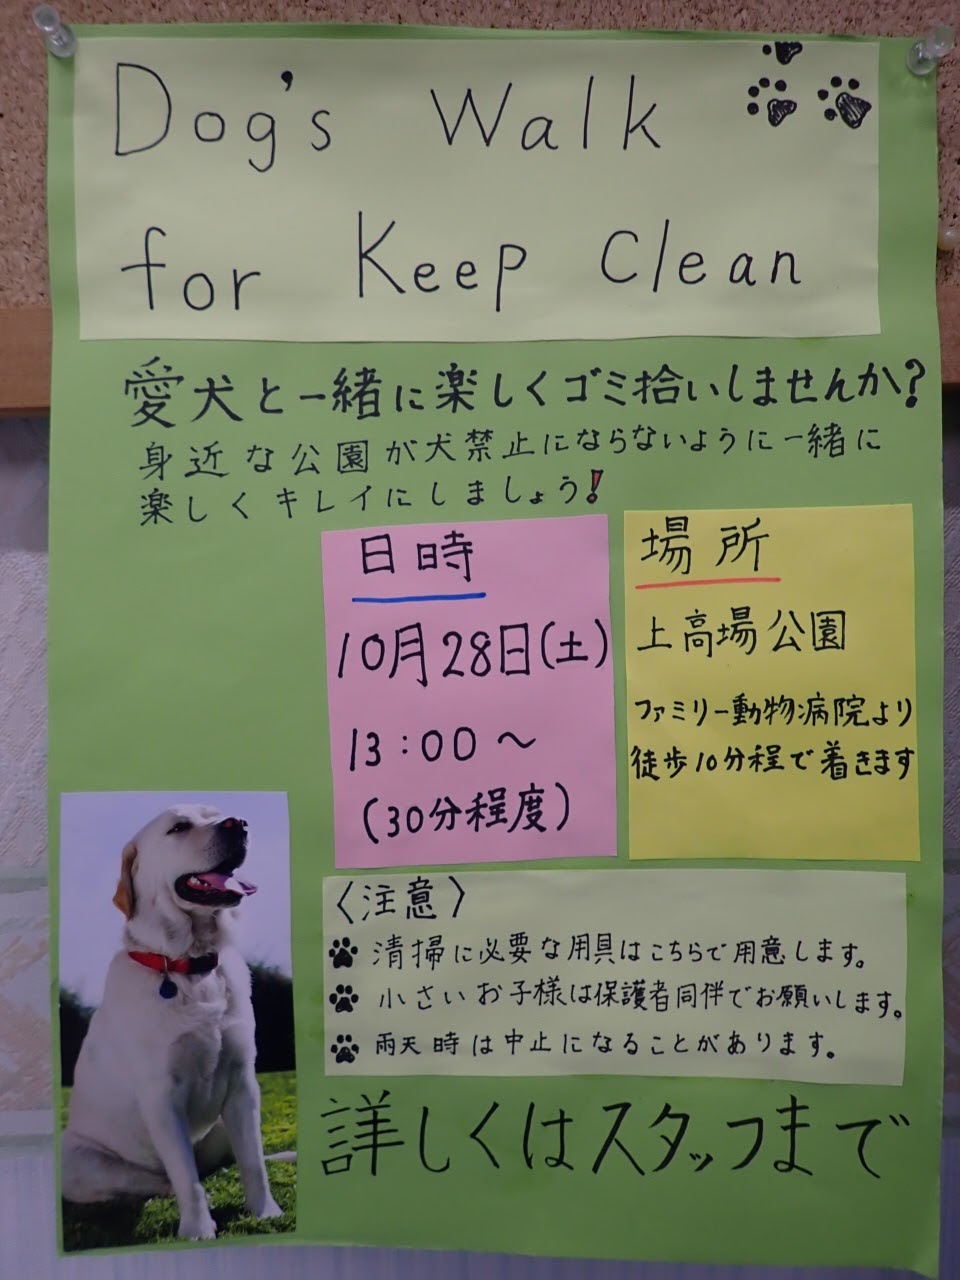 Dog's Walk
for Keep Clean
愛犬と一緒に楽しくゴミ拾いしませんか?
身近な公園が犬禁止にならないように一緒に
楽しくキレイにしましょう!
日時
10月28日(土)
13:00〜
(30分程度)
場所
上高場公園
ファミリー動物病院より
徒歩10分程で着きます
〈注意〉
清掃に必要な用具はこちらで用意します。
小さいお子様は保護者同伴でお願いします。
雨天時は中止になることがあります。
詳しくはスタッフまで